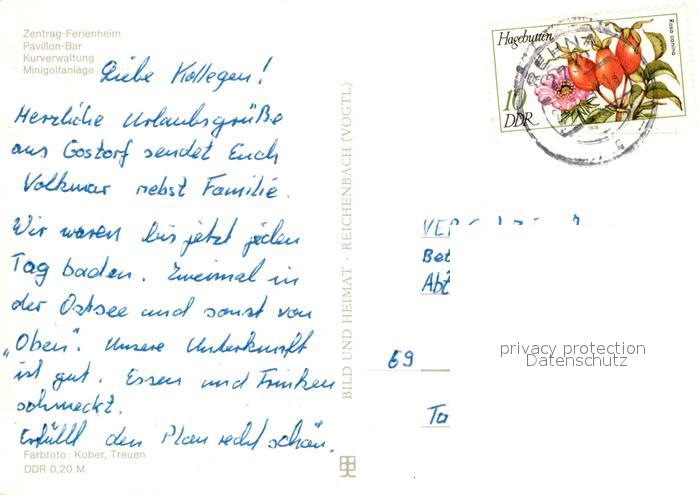 Zentrag-Ferienheim
Pavillon-Bar
Kurverwaltung
Minigolfanlage
Liebe Kollegen!
Herzliche Urlaubsgrüße
aus Gostorf sendet Euch
Volkmar nebst Familie.
Wir waren bis jetzt jeden
Tag baden. Zweimal in
der Ostsee und sonst von
„Oben". Unsere Unterkunft
ist gut. Essen und Trinken
schmeckt.
Erfüllt den Plan recht schön.
Farbfoto: Kober, Treuen
DDR 0,20 M
BILD UND HEIMAT · REICHENBACH (VOGTL)
Hagebutten
Rosa canina
10
DDR
1978
VEB
Bet
Abt
69
privacy protection
Datenschutz